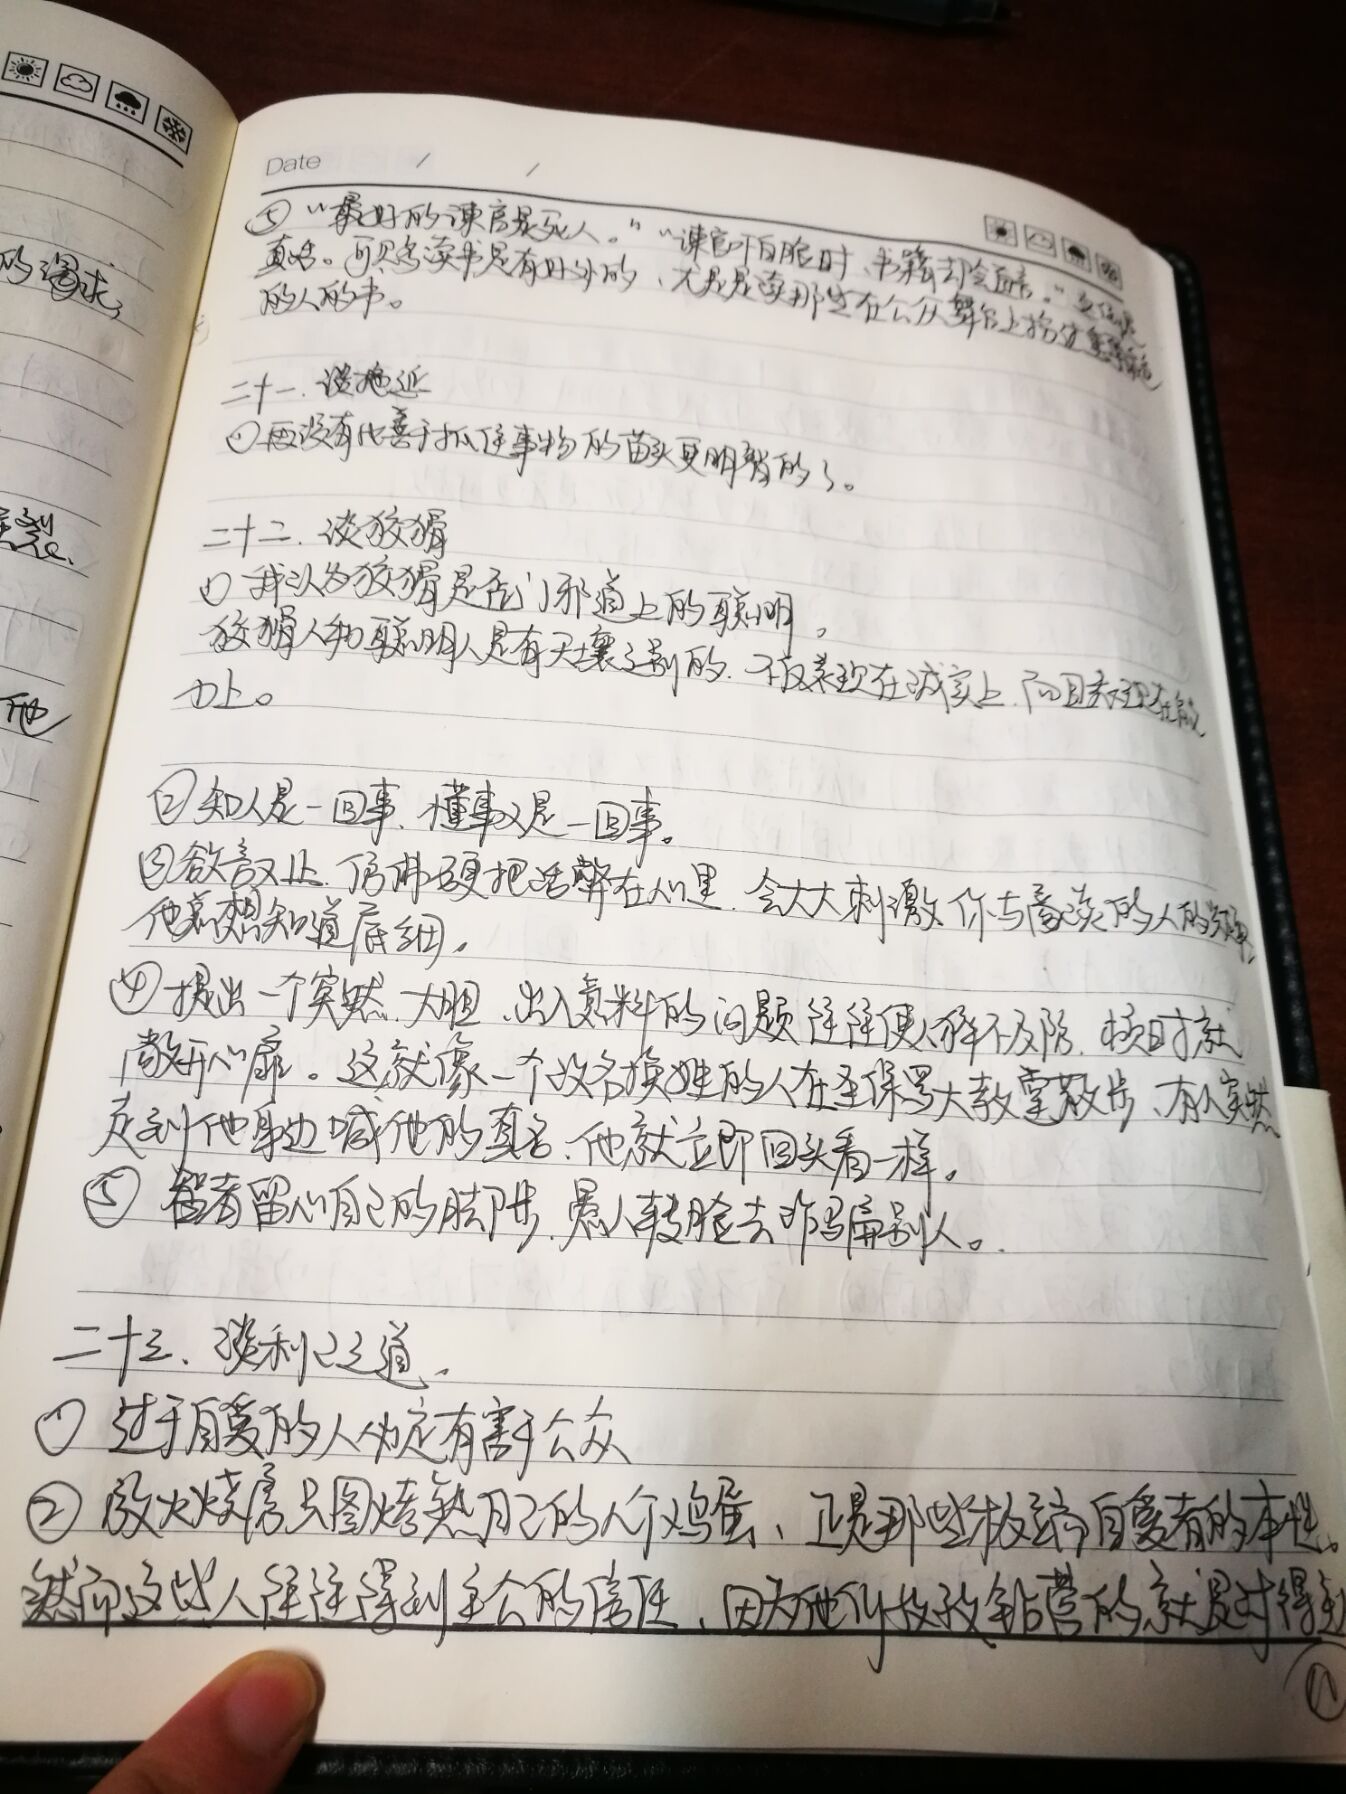 的渴求,
裂
他
Date / /
⑤“最好的谏官是死人。”“谏官吓白脸时、书籍却会直言。”
真言。可见多读书是有好处的、尤其是读那些在公众舞台上扮
的人的书。
二十一、谈拖延
①再没有比善于抓住事物的苗头更明智的了。
二十二、谈狡猾
① 我认为狡猾是歪门邪道上的聪明。
狡猾人和聪明人是有天壤之别的、不仅表现在诚实上、而且表现在能
力上。
② 知人是一回事、懂事又是一回事。
③欲言又止、仿佛硬把话憋在心里、会大大刺激你与商谈的人的
他就想知道底细。
④提出一个突然、大胆、出入意料的问题往往使人猝不及防、顿时就
敞开心扉。这就像一个改名换姓的人在圣保罗大教堂散步、有人突然
走到他身边喊他的真名、他就立即回头看一样。
⑤ 智者留心自己的脚步、愚人转脸去诈骗别人。
二十三、谈利己之道.
① 过于自爱的人必定有害于公众
② 放火烧房只图烤熟自己的几个鸡蛋、正是那些极端自爱者的本性。
然而这些人往往得到主公的信任、因为他们孜孜钻营的就是讨得主